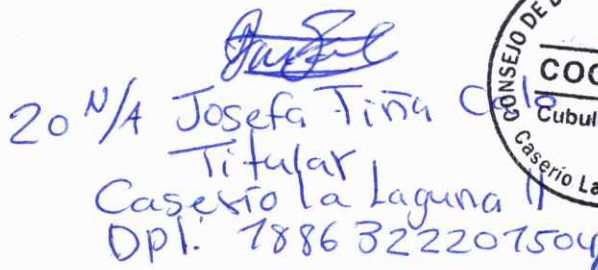 20 N/A Josefa Tiña Calo
Titular
Caserío La Laguna II
DPI. 1886 32220 1504
CONSEJO DE
COC
Cubul
Caserío La